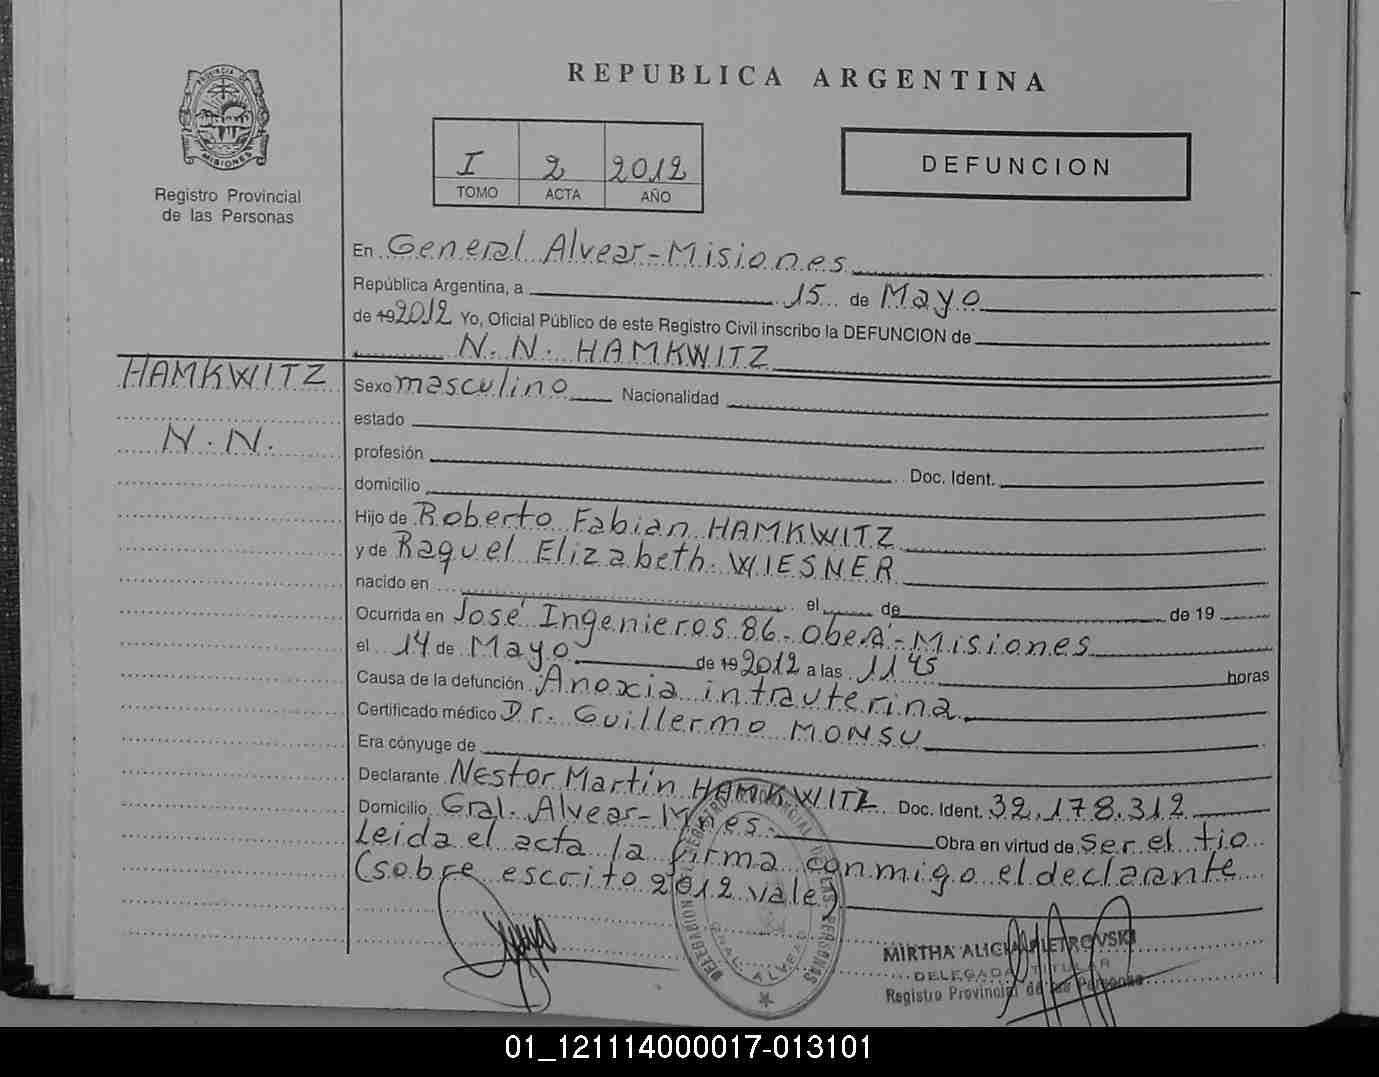 PROVINCIA DE
MISIONES
Registro Provincial
de las Personas
REPUBLICA ARGENTINA
I 2 2012
TOMO ACTA AÑO
DEFUNCION
En General Alvear-Misiones
República Argentina, a 15 de Mayo
de 19 2012 Yo, Oficial Público de este Registro Civil inscribo la DEFUNCION de
N. N. HAMKWITZ
HAMKWITZ
N. N.
Sexo masculino Nacionalidad
estado
profesión Doc. Ident.
domicilio
Hijo de Roberto Fabian HAMKWITZ
y de Raquel Elizabeth WIESNER
nacido en el de de 19
Ocurrida en José Ingenieros 86-Oberá-Misiones
el 14 de Mayo de 19 2012 a las 11 45 horas
Causa de la defunción Anoxia intrauterina
Certificado médico Dr. Guillermo MONSU
Era cónyuge de
Declarante Nestor Martin HAMKWITZ Doc. Ident. 32.178.312
Domicilio Gral. Alvear-Mnes. Obra en virtud de Ser el tio
Leida el acta la firma conmigo el declarante
(sobre escrito 2012 vale)
DELEGACION REGISTRO PROVINCIAL DE LAS PERSONAS
GRAL. ALVEAR
MIRTHA ALICIA PIETROVSKI
DELEGADA TITULAR
Registro Provincial de las Personas
01_121114000017-013101